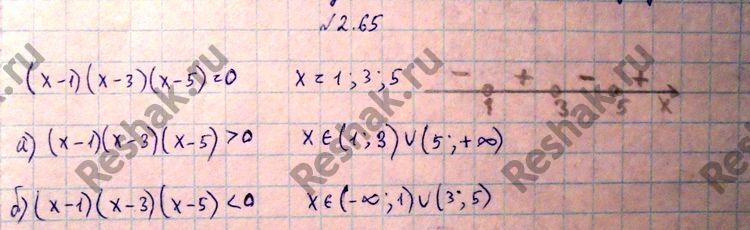 №2.65
(x-1)(x-3)(x-5)=0 x=1;3;5 - + - + 1 3 5 x
а) (x-1)(x-3)(x-5)>0 x∈(1;3)∪(5;+∞)
б) (x-1)(x-3)(x-5)<0 x∈(-∞;1)∪(3;5)
Reshak.ru
Reshak.ru
Reshak.ru
Reshak.ru